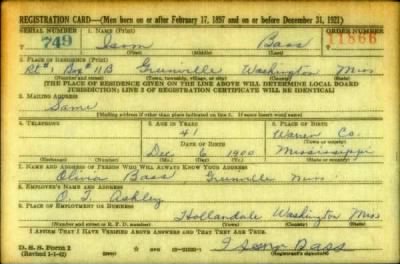 REGISTRATION CARD—(Men born on or after February 17, 1897 and on or before December 31, 1921)
SERIAL NUMBER 1. NAME (Print) ORDER NUMBER
749 Isom Bass 11866
(First) (Middle) (Last)
2. PLACE OF RESIDENCE (Print)
Rt #1 Box #11B Greenville Washington Miss
(Number and street) (Town, township, village, or city) (County) (State)
[THE PLACE OF RESIDENCE GIVEN ON THE LINE ABOVE WILL DETERMINE LOCAL BOARD
JURISDICTION; LINE 2 OF REGISTRATION CERTIFICATE WILL BE IDENTICAL]
3. MAILING ADDRESS
Same
[Mailing address if other than place indicated on line 2. If same insert word same]
4. TELEPHONE 5. AGE IN YEARS 6. PLACE OF BIRTH
41 Warren Co.
DATE OF BIRTH (Town or county)
Dec 6 1900 Mississippi
(Mo.) (Day) (Yr.) (State or country)
7. NAME AND ADDRESS OF PERSON WHO WILL ALWAYS KNOW YOUR ADDRESS
Olivia Bass Greenville Miss
8. EMPLOYER'S NAME AND ADDRESS
O. T. Ashley
9. PLACE OF EMPLOYMENT OR BUSINESS
Hollandale Washington Miss
(Number and street or R. F. D. number) (Town) (County) (State)
I AFFIRM THAT I HAVE VERIFIED ABOVE ANSWERS AND THAT THEY ARE TRUE.
D. S. S. Form 1
(Revised 1-1-42) (over) Bass
(Registrant's signature)